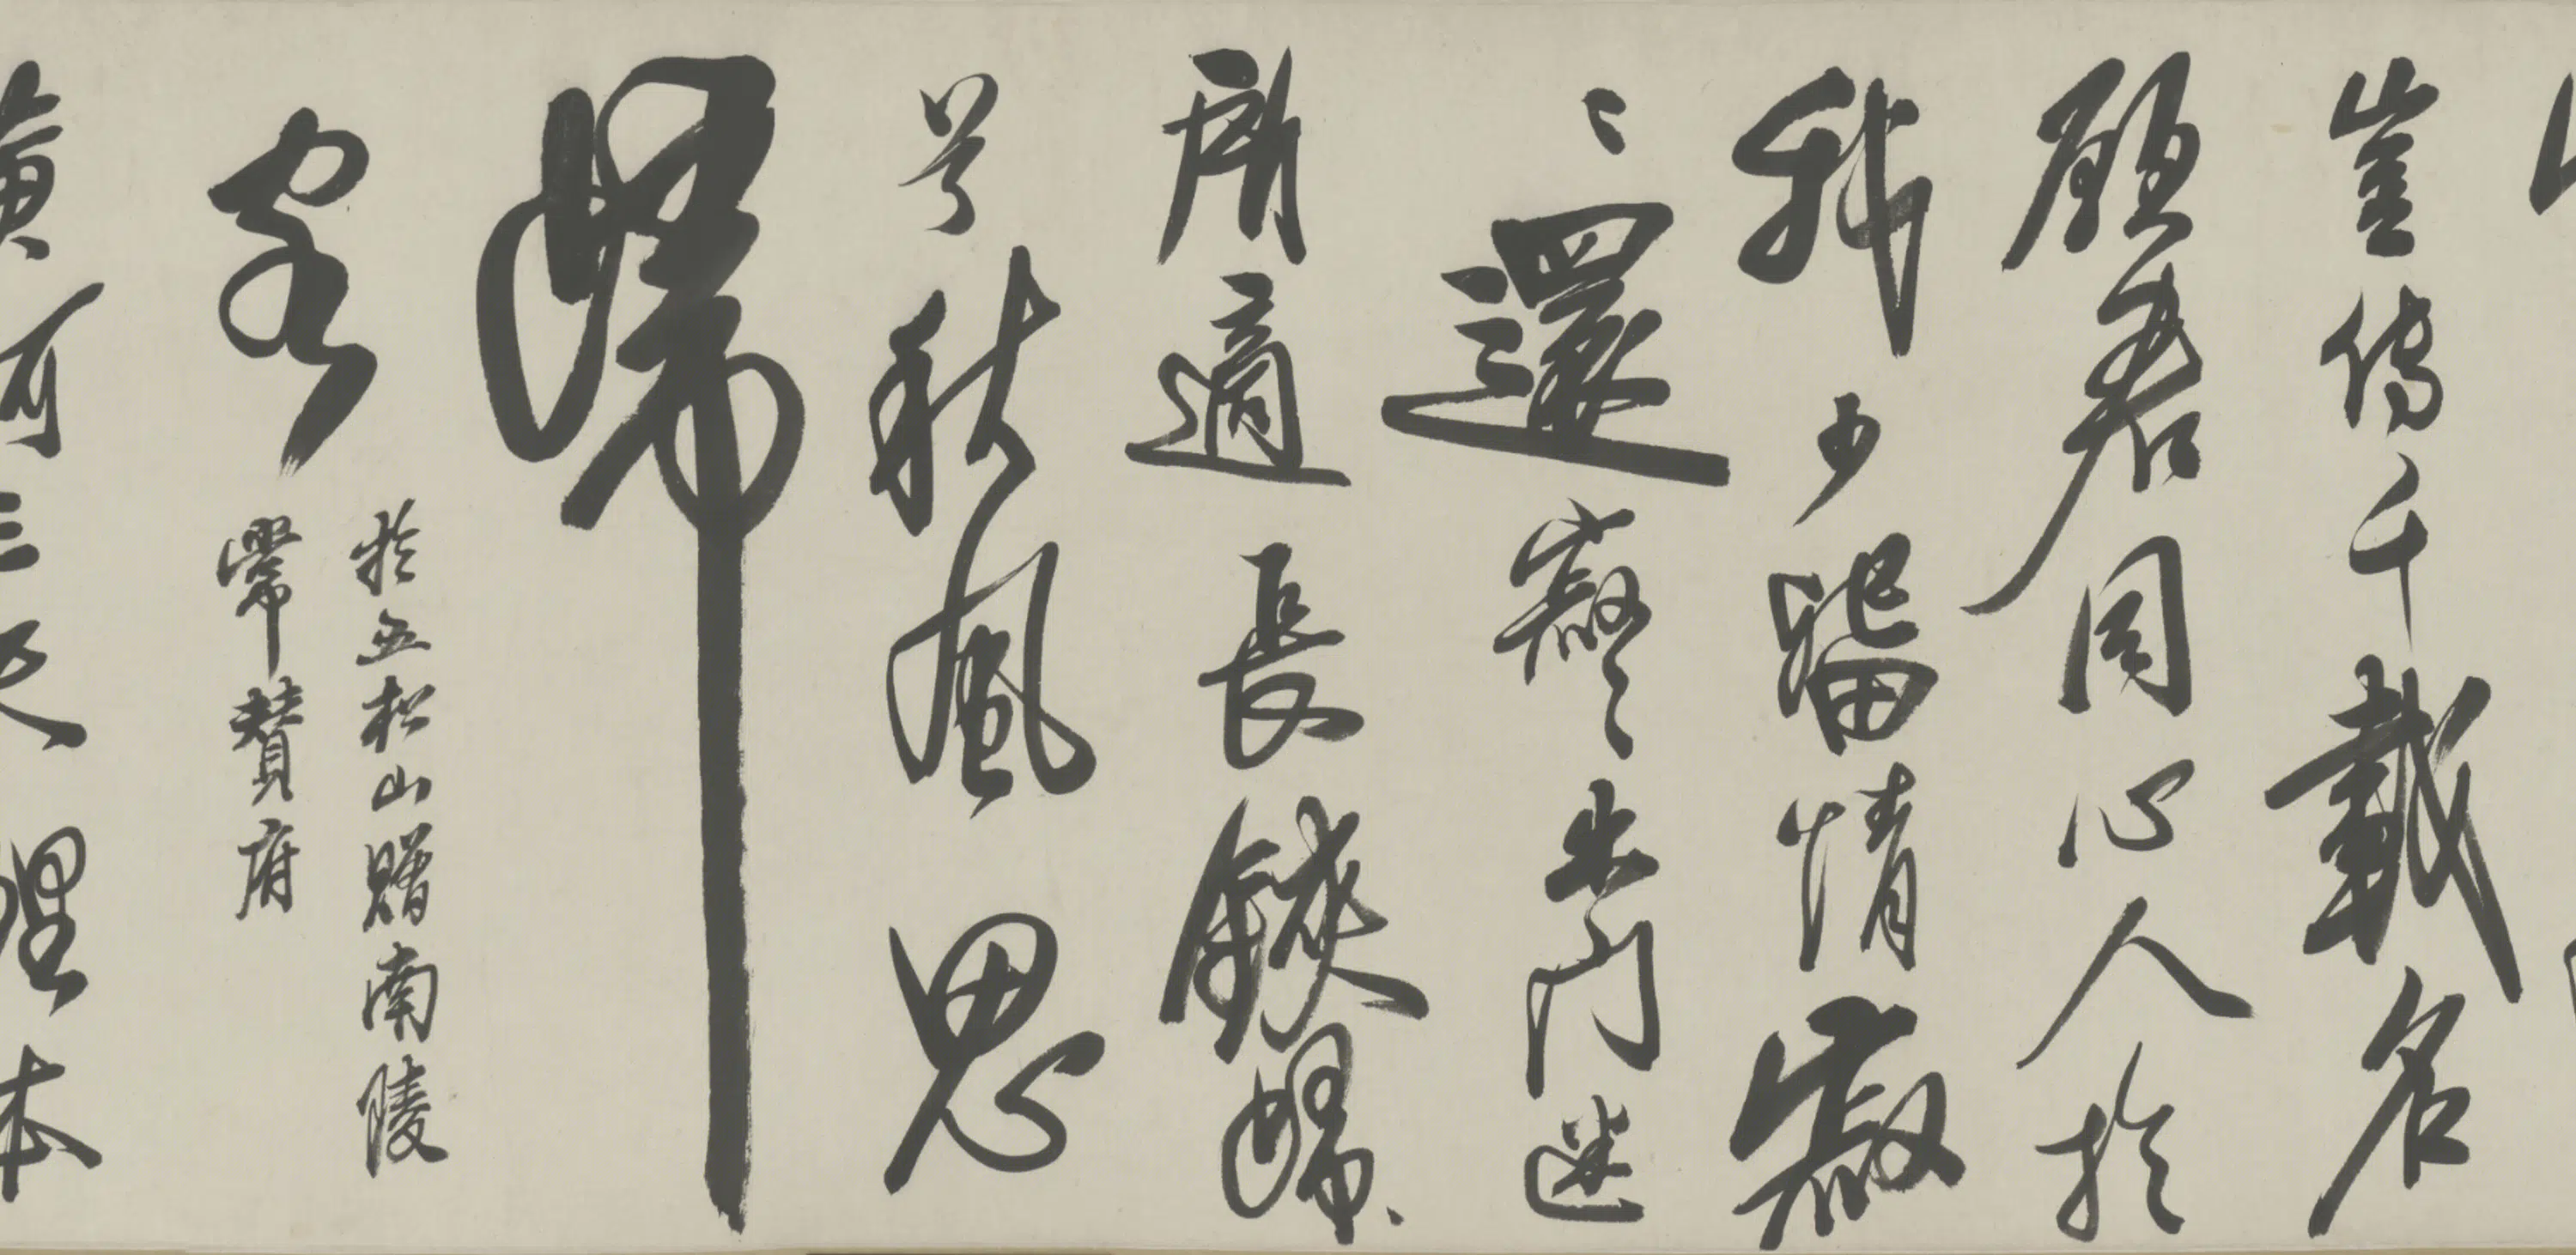 豈傳千載名
願君同心人於
我少留情寂
〻還寂〻出門迷
所適長鋏歸
秋風思
歸
客
於五松山贈南陵
常贊府
黃河三尺鯉本